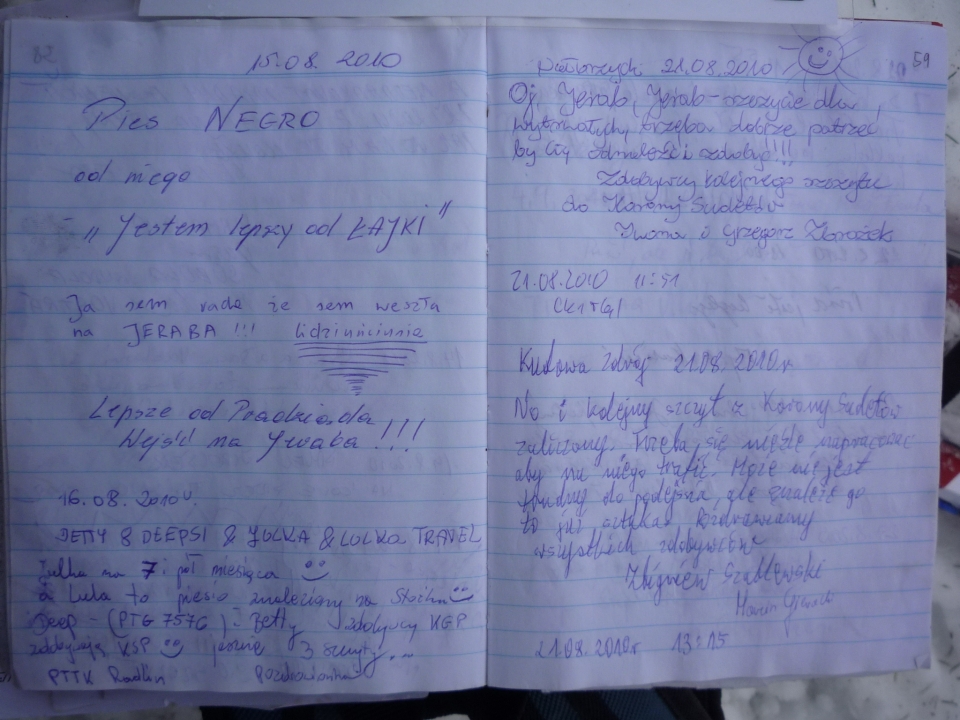 15.08 2010
Pies NEGRO
od niego
- "Jestem lepszy od ŁAJKI"
Ja sem rada że sem weszła
na JERABA !!!
Lepsze od Pradziada
Wejść na Jeraba !!!
16.08.2010r.
JETTY & DEEPSI & JULKA & LULKA TRAVEL
Julka ma 7 i pół miesiąca
a Lula to piesio znaleziony na
Deep - (PTG 757G) i Jetty zdobywcy KGP
zdobywają KSP jeszcze 3 szczyty...
PTTK Radlin Pozdrowionka
59
21.08.2010
Oj, Jerab, Jerab - szczycie dla
wytrwałych, trzeba dobrze patrzeć
by Cię odnaleźć i zdobyć!!!!
Zdobywcy kolejnego szczytu
do Korony Sudetów
Iwona i Grzegorz
21.08.2010 11:51
Kudowa Zdrój 21.08.2010r.
No i kolejny szczyt z Korony Sudetów
zaliczony. Trzeba się nieźle napracować
aby na niego trafić. Może nie jest
trudny do podejścia, ale znaleźć go
to już sztuka. Pozdrawiamy
wszystkich zdobywców
Zbigniew Szablewski
21.08.2010r 13:15